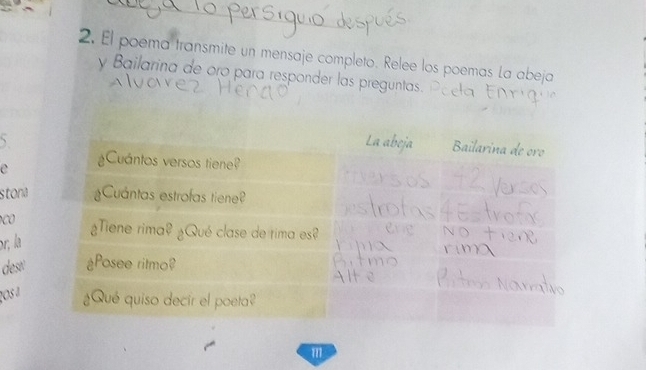 lo persiguió después
2. El poema transmite un mensaje completo. Relee los poemas La abeja
y Bailarina de oro para responder las preguntas. Poeta Enrique
Alvarez Henao
La abeja Bailarina de oro
¿Cuántos versos tiene? 12 Versos
¿Cuántas estrofas tiene? estrofas 4 Estrofas
¿Tiene rima? ¿Qué clase de rima es? No tiene
rima rima
¿Posee ritmo? Ritmo
Alte Ritmo Narrativo
¿Qué quiso decir el poeta?
111